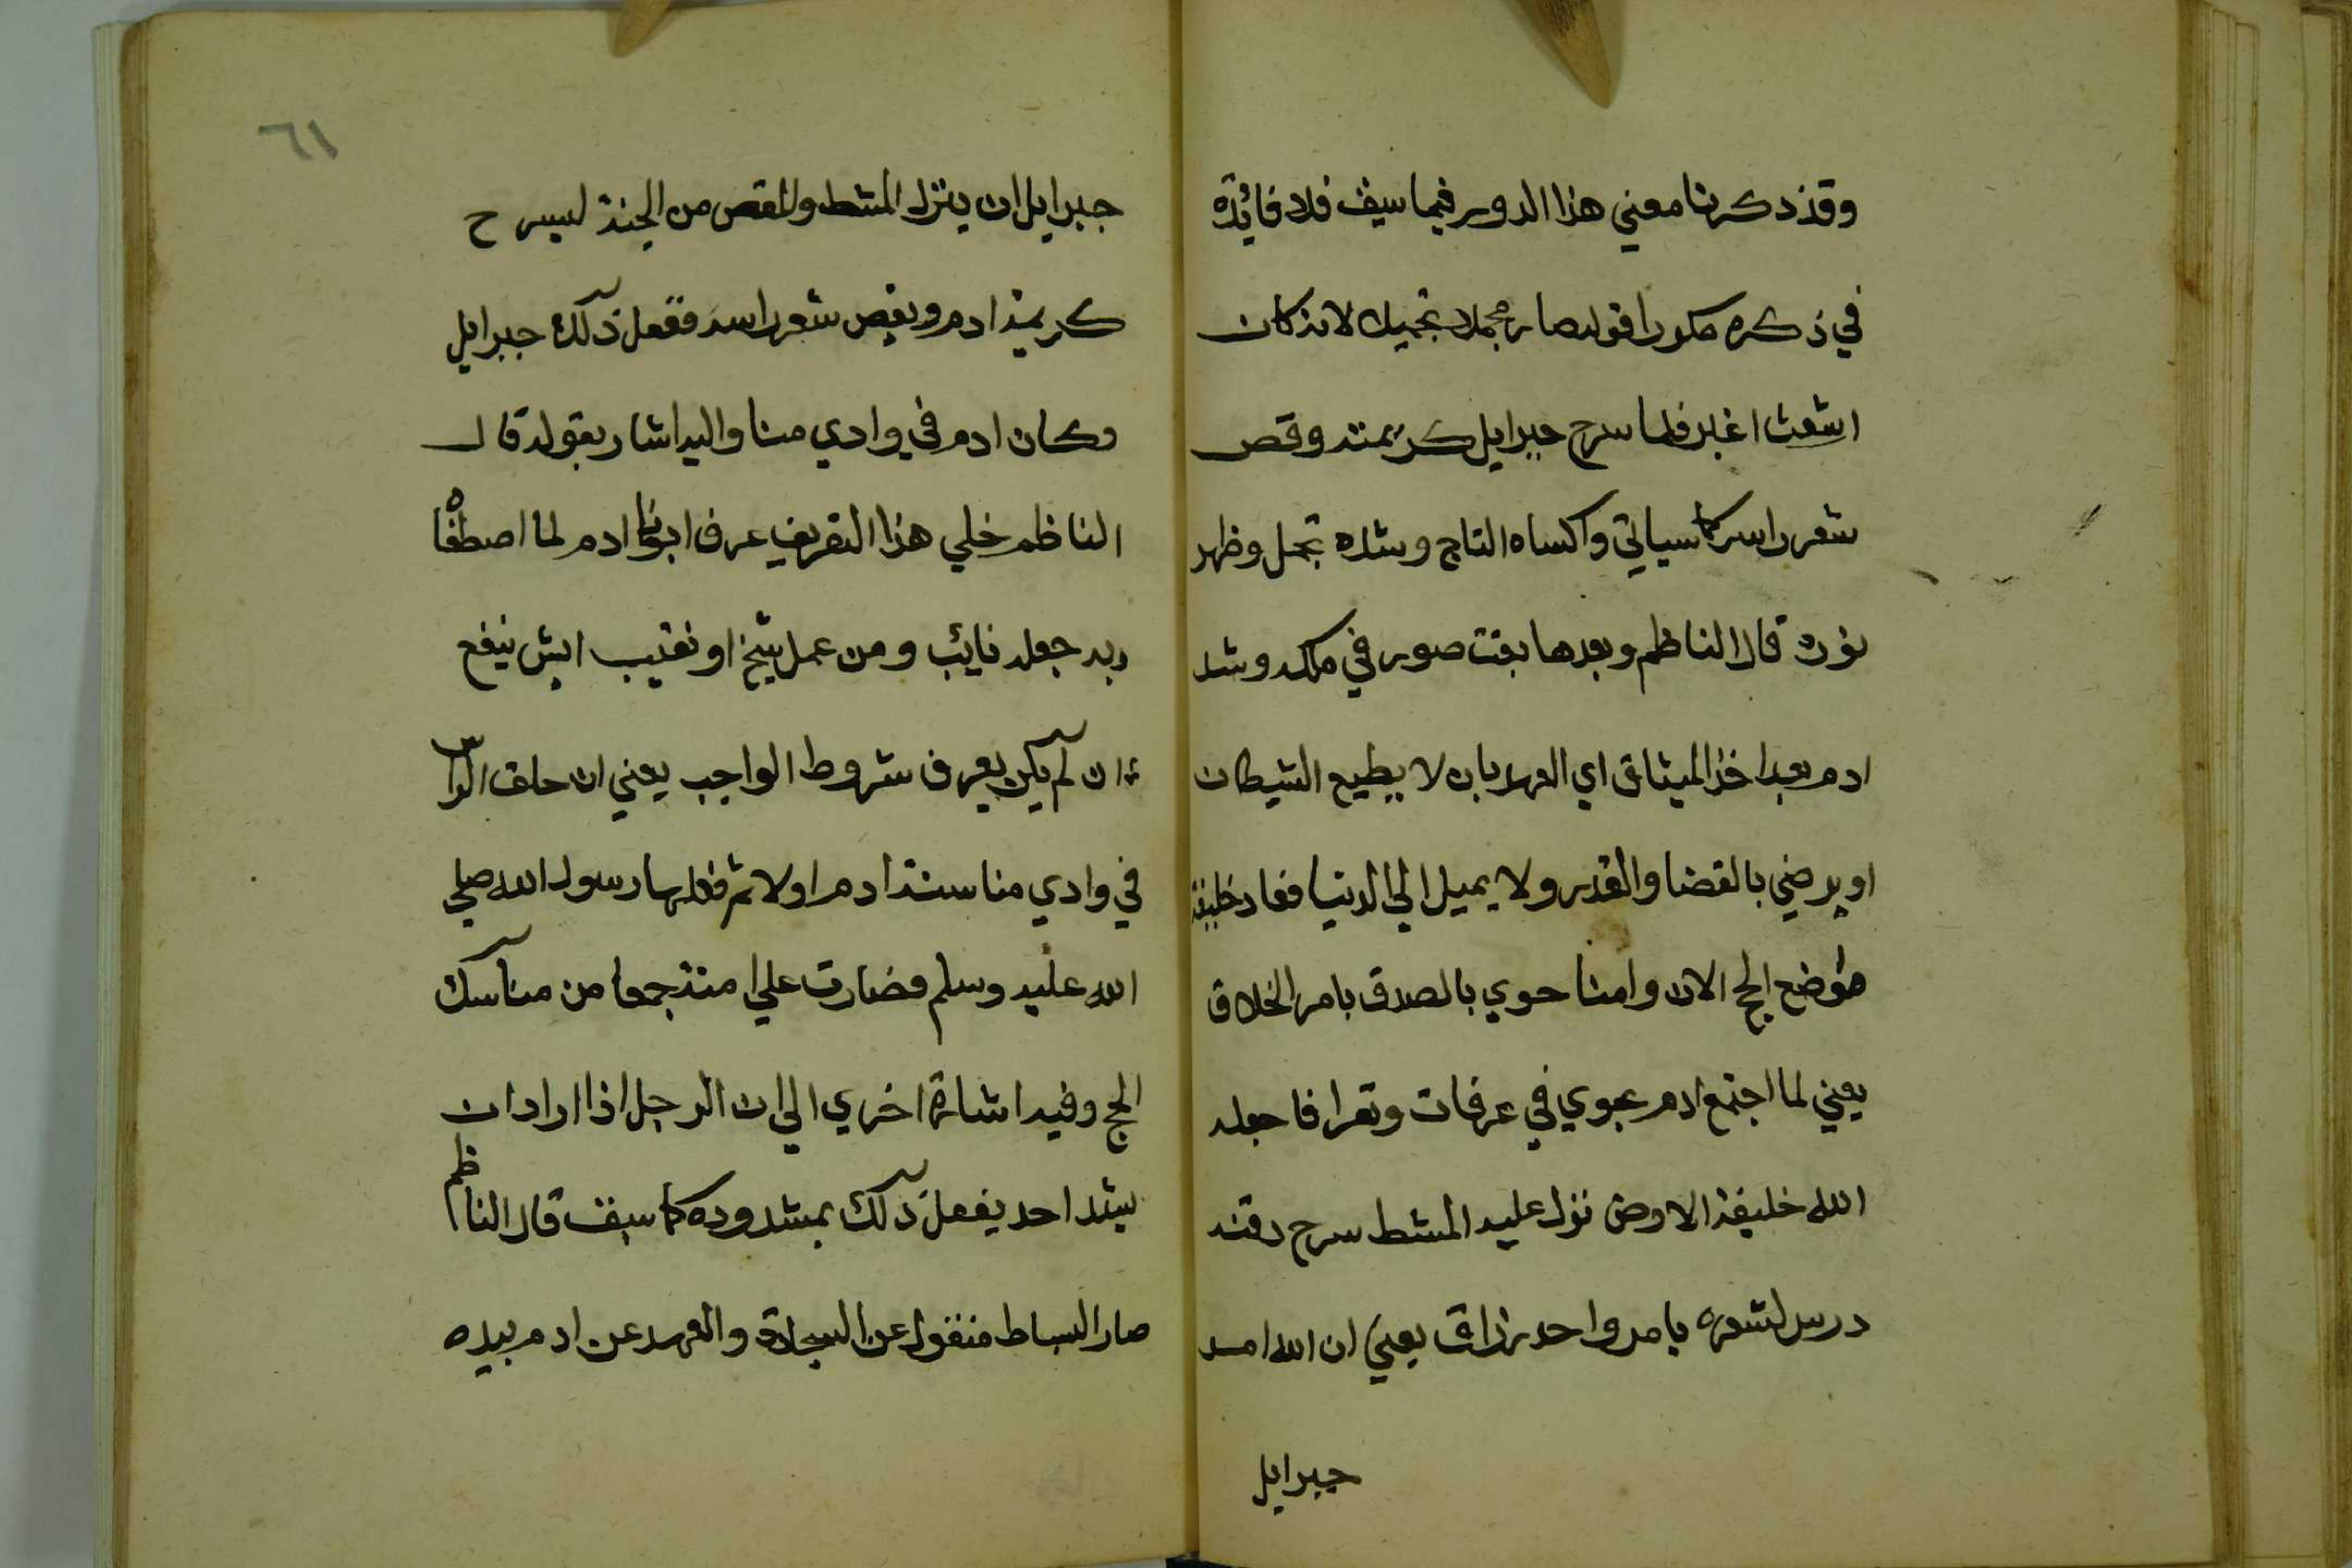 وقد ذكرنا معني هذا الدور فيما سبق فلا فائدة
في ذكره مكررا قوله صار مجملا بتجميل لانه كان
اشعث اغبر فلما سرح جبرايل كريمته وقص
شعر راسه كما سياتي واكساه التاج وشده تجمل وظهر
نوره قال الناظم وبعدها بقت صور في مكه وشد
ادم بعد اخذ الميثاق اي العهد بان لا يطيع الشيطان
او يرضي بالقضا والقدر ولا يميل الي الدنيا فعاد خليفة
موضع الحج الان وامنا حوي بالصدق بامر الخلاق
يعني لما اجتمع ادم بحوي في عرفات وتعرافا جعله
الله خليفة الاروض نزل عليه المشط سرح دقنه
درس لشعره بامر واحد رزاق يعني ان الله امر
جبرايل
٦١
جبرايل ان ينزل المشط والمقص من الجنة ليسرح
كريمة ادم ويقص شعر راسه ففعل ذلك جبرايل
وكان ادم في وادي منا واليه اشار بقوله قال
الناظم خلي هذا التعريف عرف ابونا ادم لما اصطفاه
ربه جعله نائب ومن عمل شيخ او نقيب ايش ينفع
ان لم يكن يعرف شروط الواجب يعني ان حلق الراس
في وادي منا سنة ادم اولا ثم فعلها رسول الله صلي
الله عليه وسلم فصارت علي امته جمعا من مناسك
الحج وفيه اشارة اخري الي ان الرجل اذا اراد ان
يشد احد يفعل ذلك بمشدوده كما سبق قال الناظم
صار البساط منقول عن السجادة والعهد عن ادم بيده